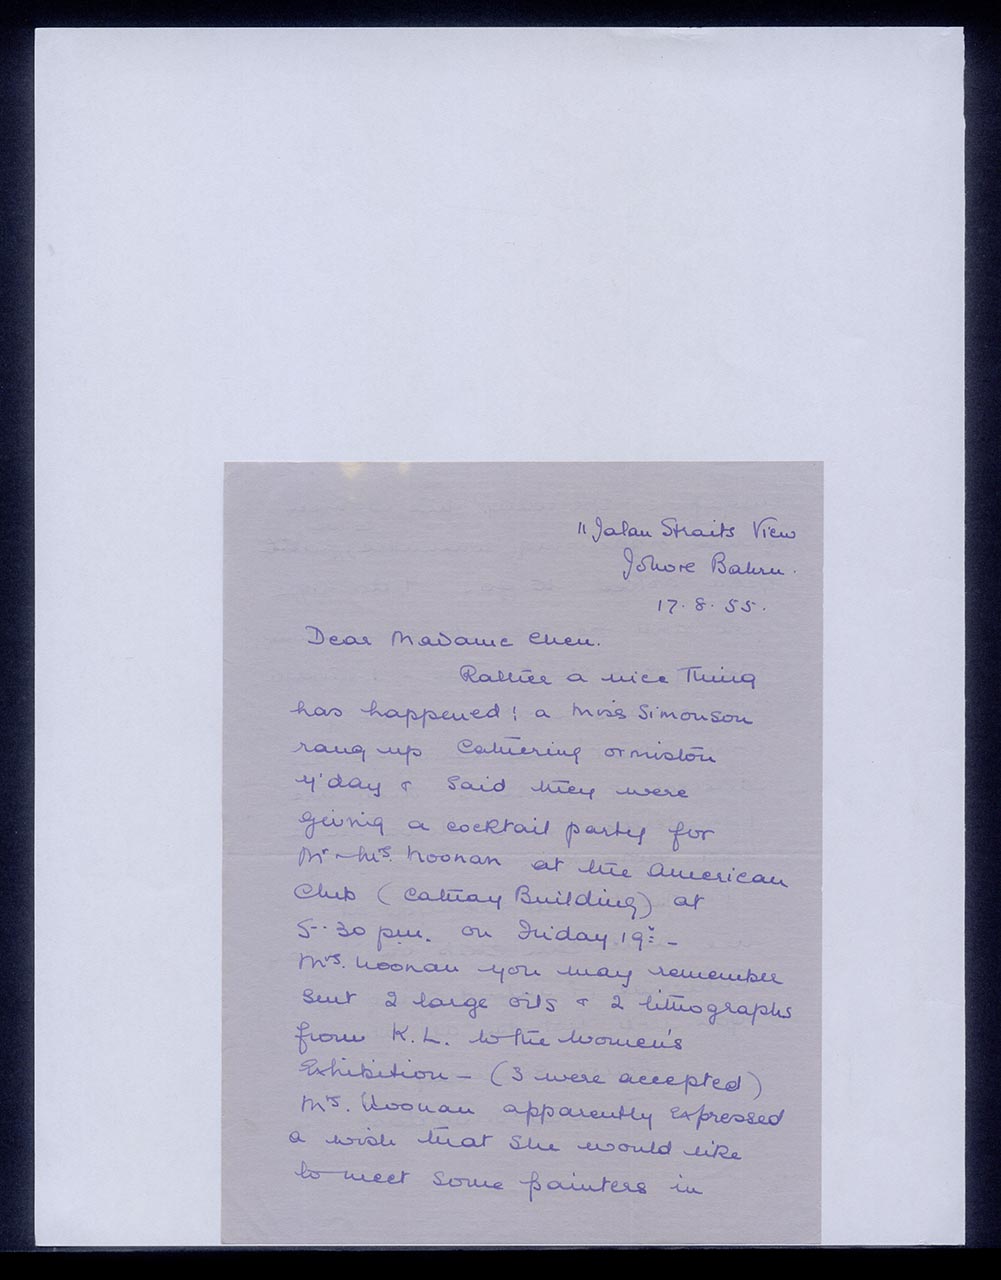 11 Jalan Straits View
Johore Bahru.
17.8.55.
Dear Madame Chen.
Rather a nice Thing
has happened! a Miss Simonson
rang up Catherine Ormiston
y'day & said they were
giving a cocktail party for
Mr & Mrs. Noonan at the American
Club (Cathay Building) at
5.30 p.m. on Friday 19th -
Mrs. Noonan you may remember
sent 2 large oils & 2 lithographs
from K.L. to the Women's
Exhibition - (3 were accepted)
Mrs. Noonan apparently expressed
a wish that she would like
to meet some painters in